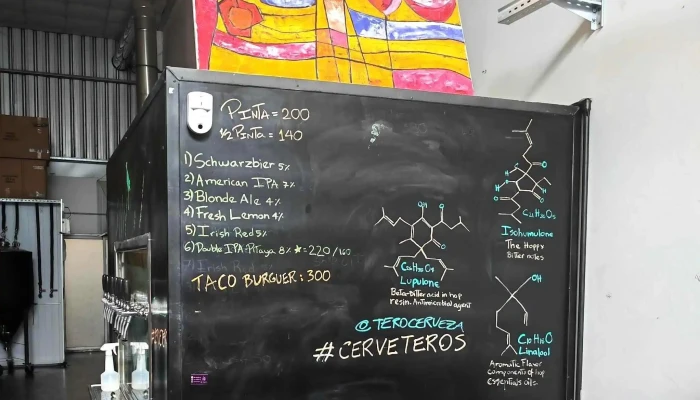 PINTA = 200
1/2 PINTA = 140
1) Schwarzbier 5%
2) American IPA 7%
3) Blonde Ale 4%
4) Fresh Lemon 4%
5) Irish Red 5%
6) Double IPA-Pitaya 8% ★=220/160
TACO BURGUER: 300
OH
O
O
Lupulone
Beta-Bitter acid in hop
resin. Antimicrobial agent
@TEROCERVEZA
#CERVETEROS
O
Isohumulone
The Hoppy
Bitter notes
OH
C10H18O
Linalool
Aromatic Flavor
components of hop
essentials oils.